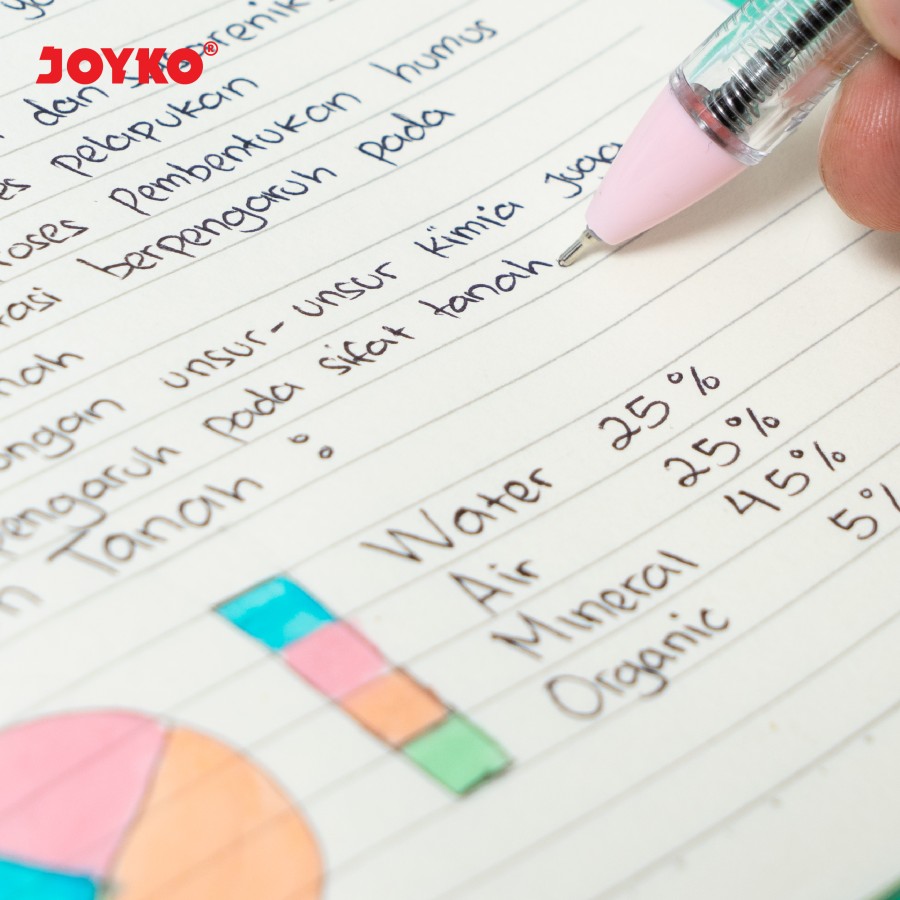 JOYKO®
dan
pelapukan
pembentukan humus
berpengaruh pada
unsur-unsur kimia juga
pengaruh pada sifat tanah
Tanah :
Water 25%
Air 25%
Mineral 45%
Organic 5%